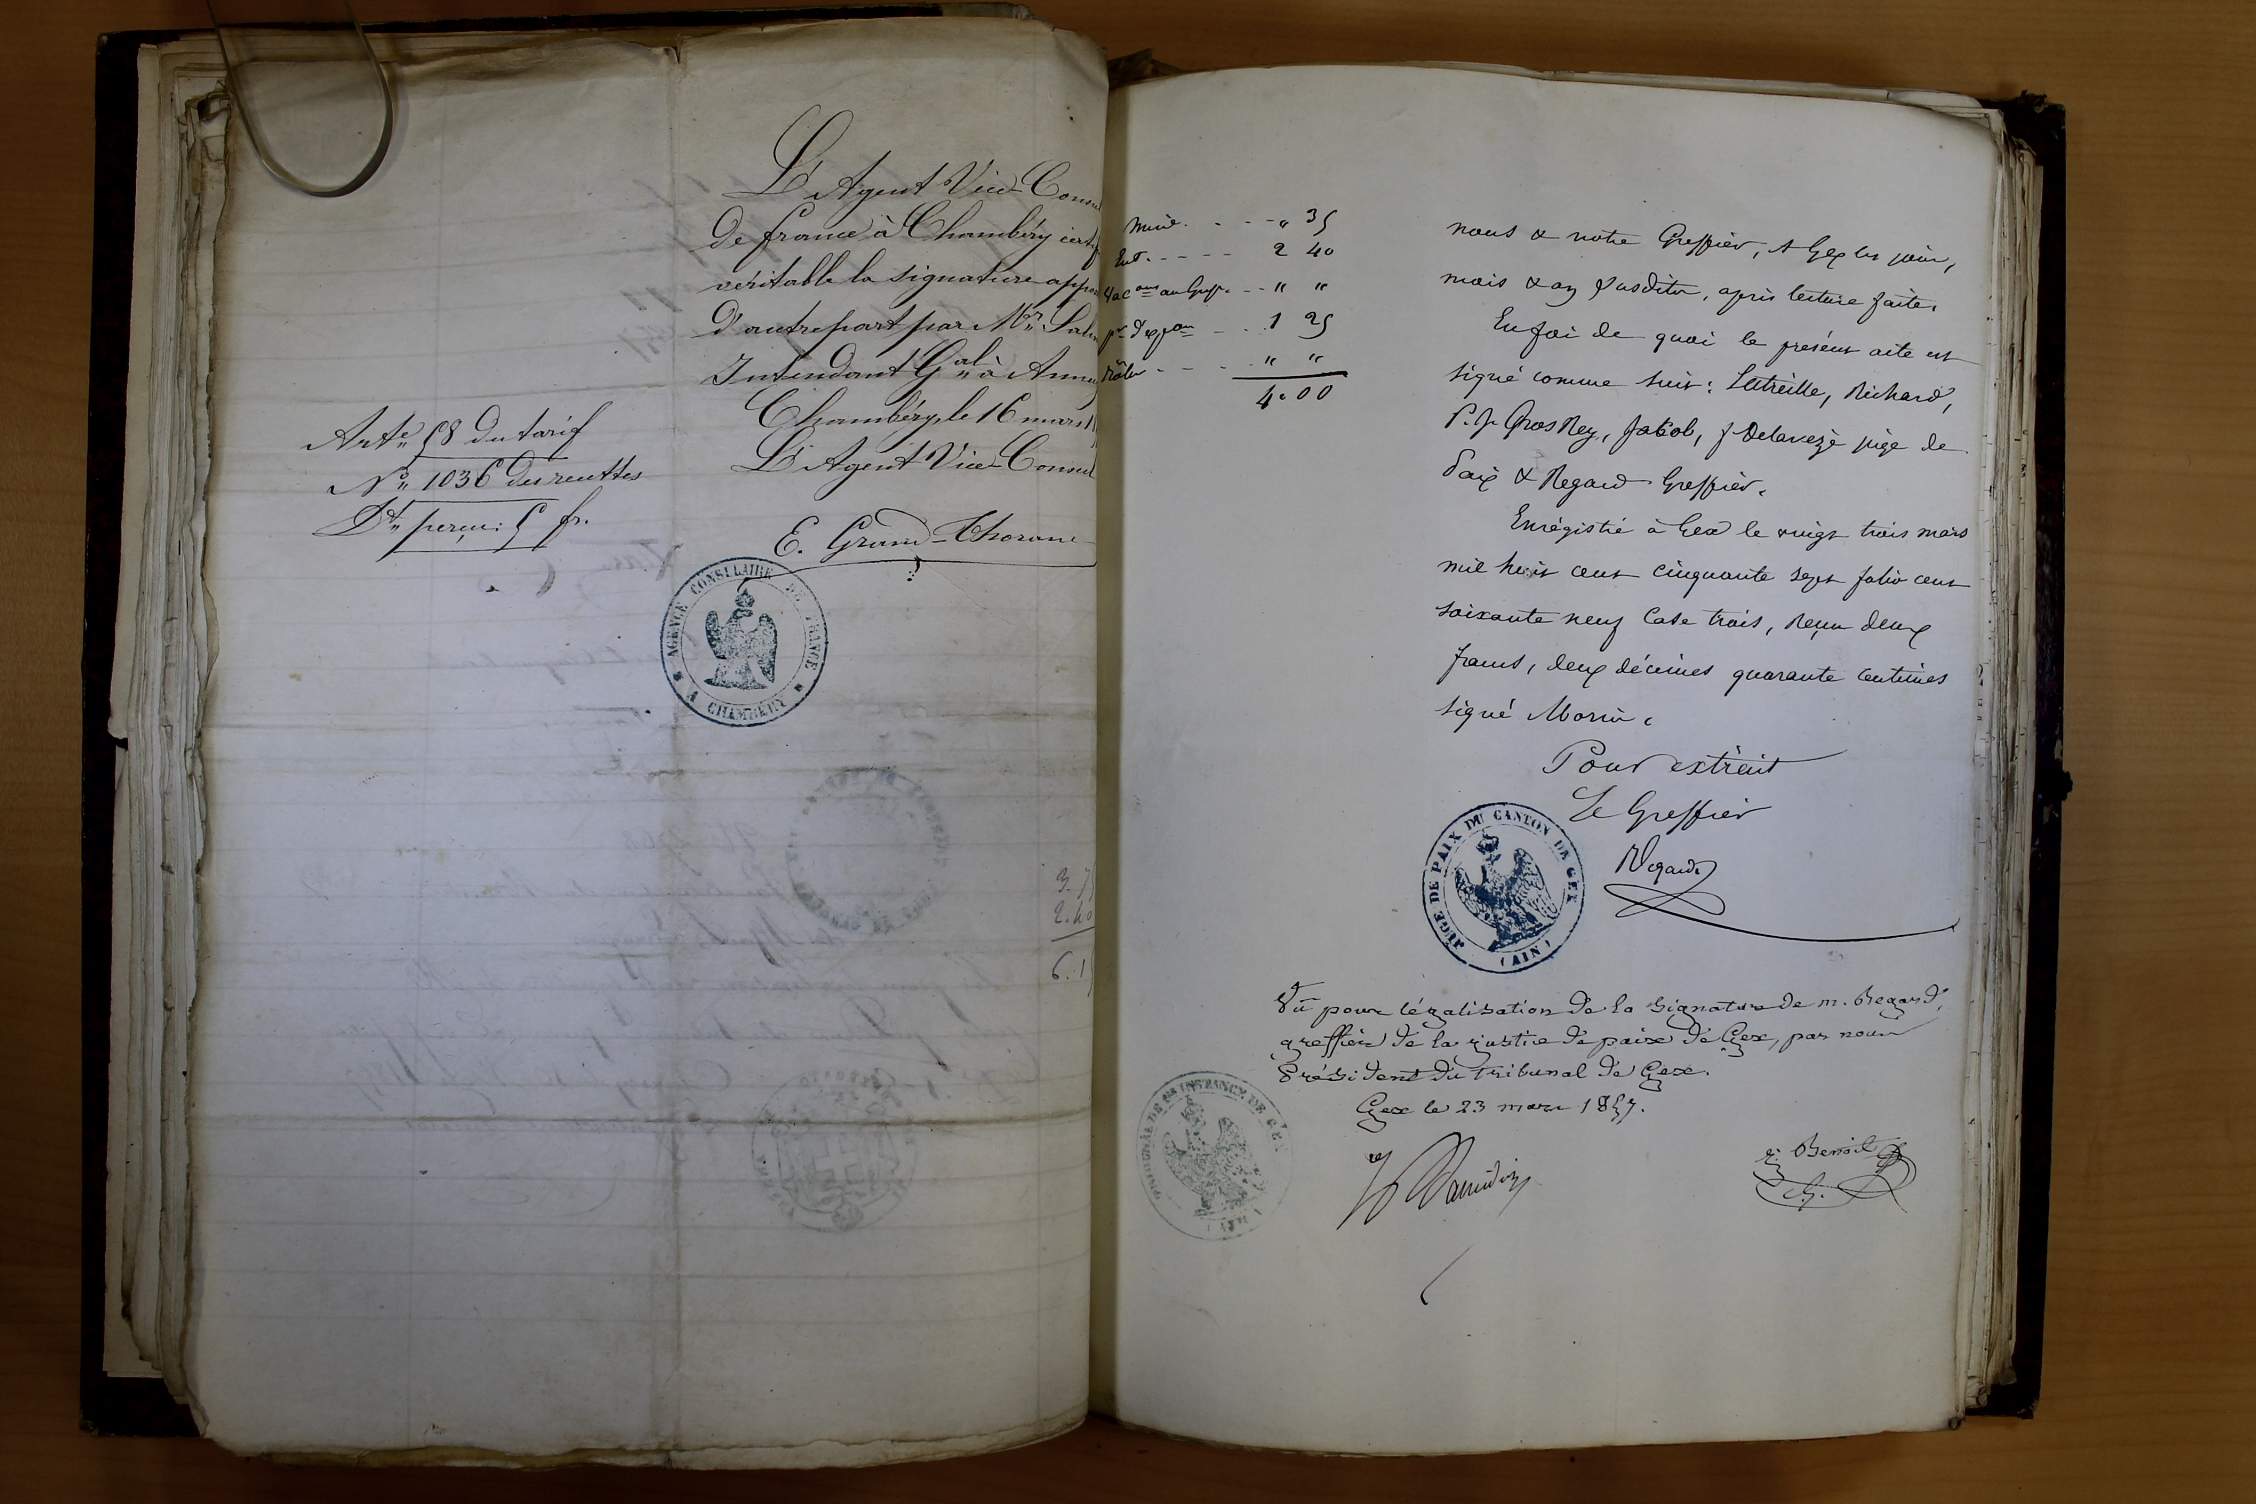 L'Agent Vice-Consul
de france à Chambéry certif
véritable la signature appos
d'autrepart par Mr. Sale
Intendant Gal à Annecy
Chambéry, le 16 mars
L'Agent Vice-Consul
E. Grand-Thorane
Arte 58 du tarif
No 1036 des recettes
Dts perçu: 5 fr.
AGENCE CONSULAIRE DE FRANCE
A CHAMBERY
3. 75
2. 40
6. 15
Mine. - - - " 35
Ent. - - - - 2 40
Vac ons au Greff. - - " "
pr d'expon - - 1 25
Rôles - - - " "
4. 00
nous & notre Greffier, A Gex les jour,
mois & an susdits, après lecture faite.
En foi de quoi le présent acte est
signé comme suit: Latreille, Richard,
P. J. Gros Rey, Jacob, J Delavezè juge de
Paix & Regard Greffier.
Enrégistré à Gex le vingt trois mars
mil huit cent cinquante sept folio cent
soixante neuf Case trois, reçu deux
francs, deux décimes quarante centimes
signé Morin.
Pour extrait
Le Greffier
Regard
JUGE DE PAIX DU CANTON DE GEX
(AIN)
Vu pour légalisation de la signature de m. Regard,
greffier de la justice de paix de Gex, par nous
Président du tribunal de Gex.
Gex le 23 mars 1857.
Benoit
TRIBUNAL DE 1RE INSTANCE DE GEX
(AIN)